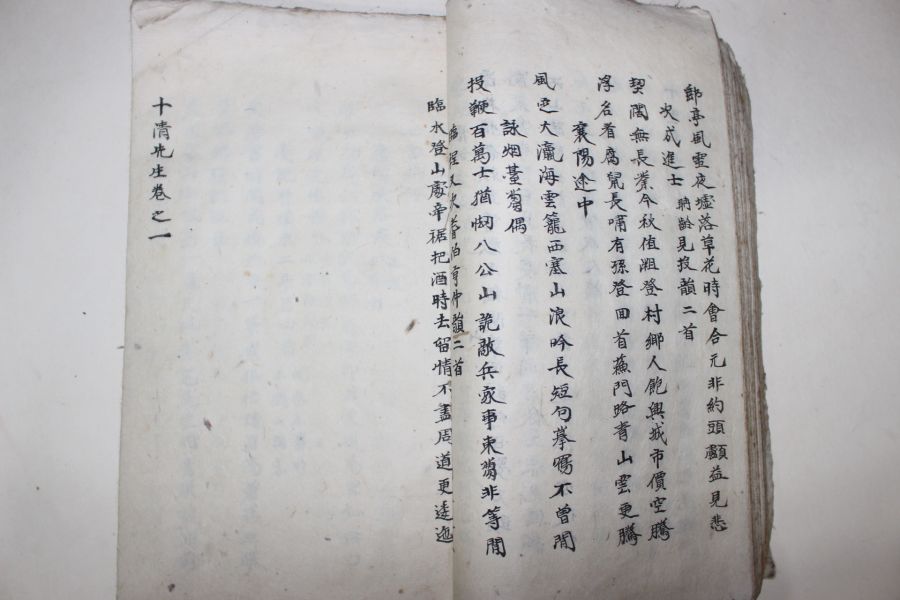 郵亭風雪夜墟落草花時會合元非約頭顱益見悲
次成進士聃齡見投韻二首
契闊無長業今秋値漸登村鄉人飽興城市價空騰
浮名看腐鼠長嘯有孫登回首蘇門路靑山雲更騰
襄陽途中
風色大瀛海雲籠西塞山浪吟長短句攀躋不曾閒
詠烟臺蒭偶
投鞭百萬士猶恸八公山詭敵兵家事東蒭非等閒
仲韻二首
臨水登山處帝裾把酒時去留情不盡周道更逶迤
十淸先生卷之一